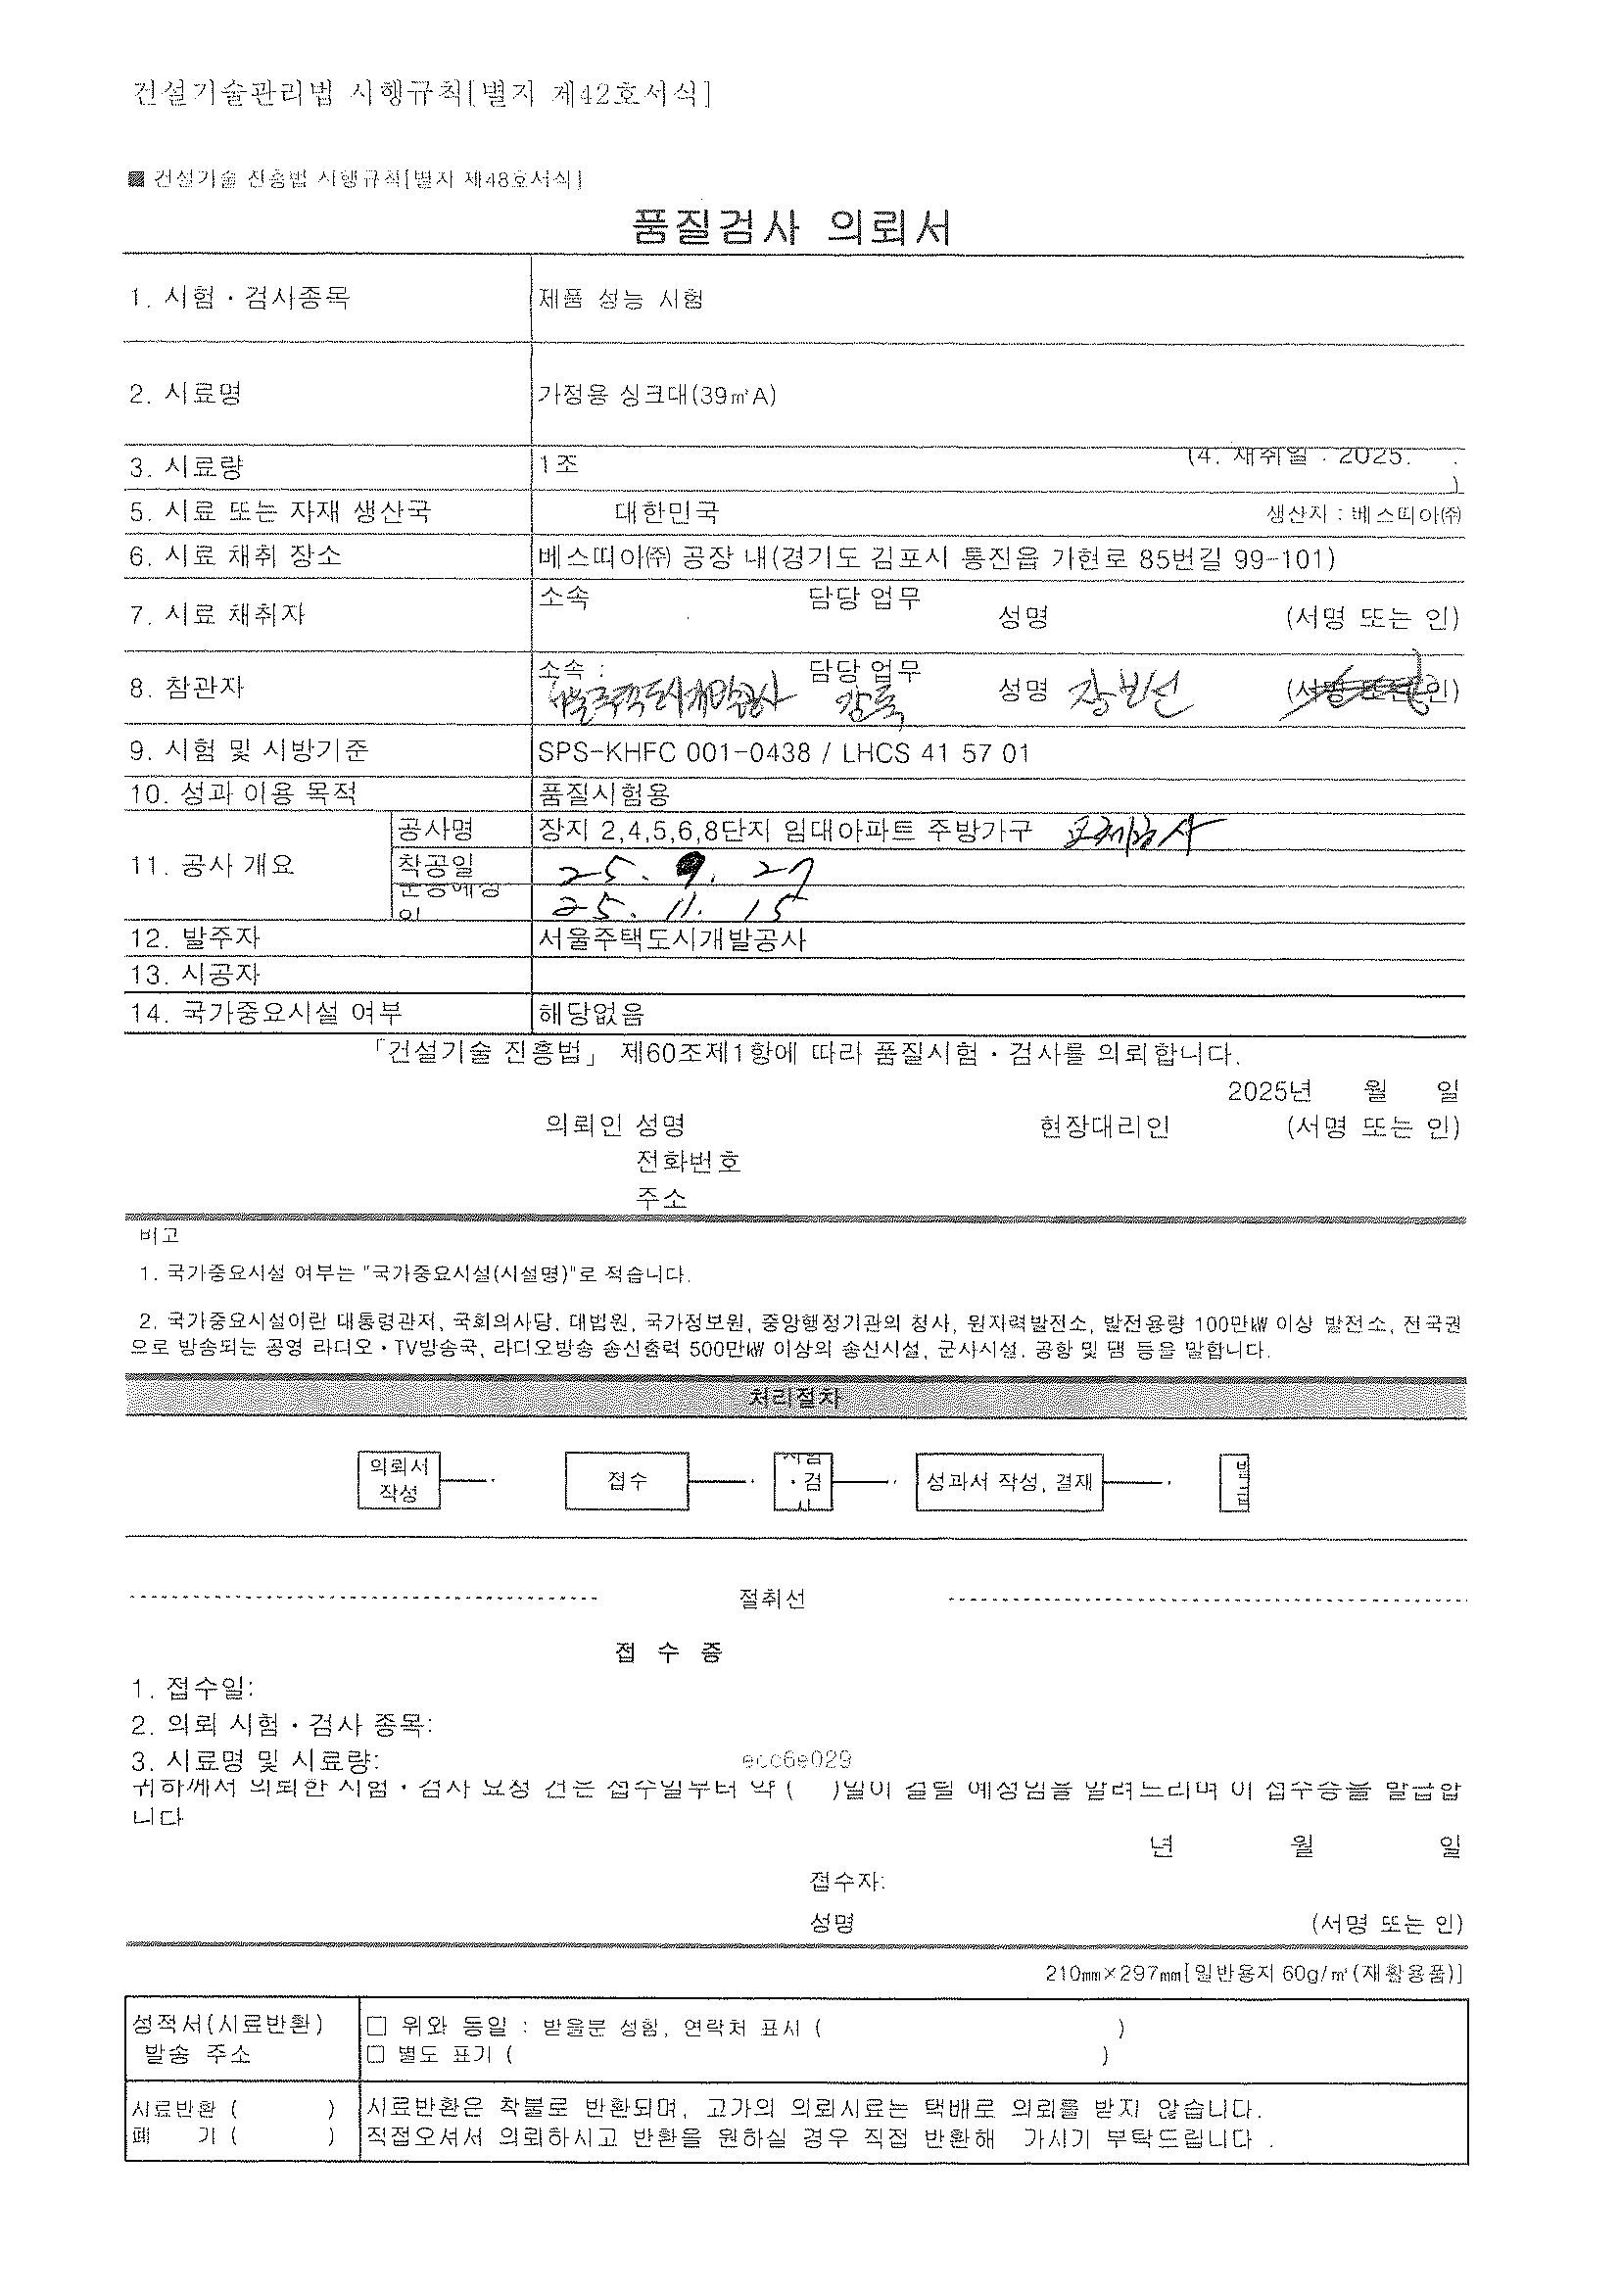 건설기술관리법 시행규칙[별지 제42호서식]
■ 건설기술 진흥법 시행규칙[별지 제48호서식]
품질검사 의뢰서
1. 시험 · 검사종목 제품 성능 시험
2. 시료명 가정용 싱크대(39㎡A)
3. 시료량 1조 (4. 채취일 : 2025. . )
5. 시료 또는 자재 생산국 대한민국 생산자 : 베스띠아㈜
6. 시료 채취 장소 베스띠아㈜ 공장 내(경기도 김포시 통진읍 가현로 85번길 99-101)
7. 시료 채취자 소속 담당 업무 성명 (서명 또는 인)
8. 참관자 소속 : 서울주택도시개발공사 담당 업무 감독 성명 (서명 또는 인)
9. 시험 및 시방기준 SPS-KHFC 001-0438 / LHCS 41 57 01
10. 성과 이용 목적 품질시험용
11. 공사 개요 공사명 장지 2,4,5,6,8단지 임대아파트 주방가구 교체공사
착공일 25. 9. 27
준공예정일 25. 11. 15
12. 발주자 서울주택도시개발공사
13. 시공자
14. 국가중요시설 여부 해당없음
「건설기술 진흥법」 제60조제1항에 따라 품질시험 · 검사를 의뢰합니다.
2025년 월 일
의뢰인 성명 현장대리인 (서명 또는 인)
전화번호
주소
비고
1. 국가중요시설 여부는 "국가중요시설(시설명)"로 적습니다.
2. 국가중요시설이란 대통령관저, 국회의사당, 대법원, 국가정보원, 중앙행정기관의 청사, 원자력발전소, 발전용량 100만㎾ 이상 발전소, 전국권
으로 방송되는 공영 라디오 · TV방송국, 라디오방송 송신출력 500만㎾ 이상의 송신시설, 군사시설, 공항 및 댐 등을 말합니다.
처리절차
의뢰서 작성 접수 시험 · 검사 성과서 작성, 결재 발급
절취선
접 수 증
1. 접수일:
2. 의뢰 시험 · 검사 종목:
3. 시료명 및 시료량: ecc6e029
귀하께서 의뢰한 시험 · 검사 요청 건은 접수일부터 약 ( )일이 걸릴 예정임을 알려드리며 이 접수증을 발급합
니다
년 월 일
접수자:
성명 (서명 또는 인)
210㎜×297㎜[일반용지 60g/㎡(재활용품)]
성적서(시료반환) □ 위와 동일 : 받을분 성함, 연락처 표시 ( )
발송 주소 □ 별도 표기 ( )
시료반환 ( ) 시료반환은 착불로 반환되며, 고가의 의뢰시료는 택배로 의뢰를 받지 않습니다.
폐 기 ( ) 직접오셔서 의뢰하시고 반환을 원하실 경우 직접 반환해 가시기 부탁드립니다 .